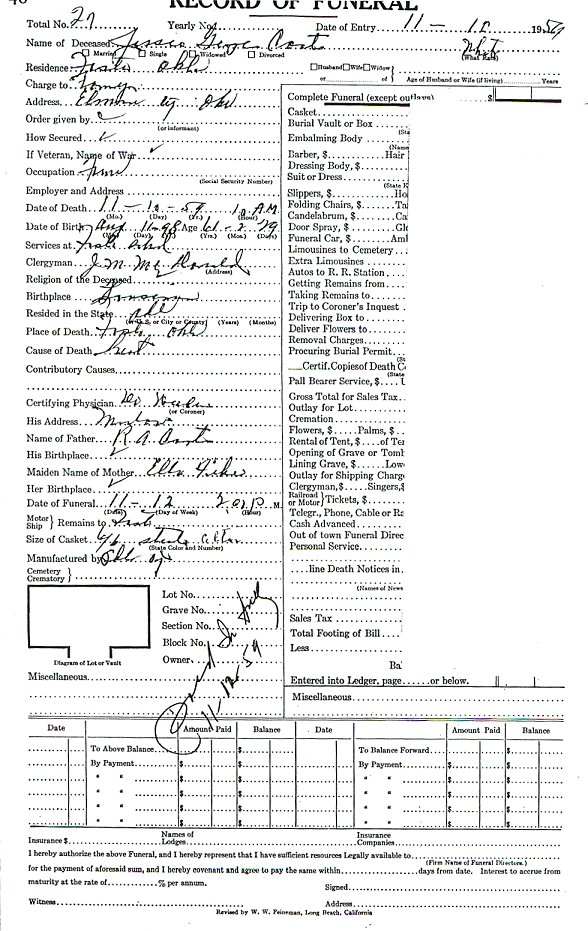 RECORD OF FUNERAL
Total No. 27 Yearly No. Date of Entry 11 - 1 1959
Name of Deceased Jessie George
Married Single Widowed Divorced
(What Race)
Residence Okla Husband Wife Widow
or of Age of Husband or Wife (if living) Years
Charge to
Address Okl
Order given by
(or informant)
How Secured
If Veteran, Name of War
Occupation
(Social Security Number)
Employer and Address
Date of Death 11 - 10 - 59 A.M.
(Mo.) (Day) (Yr.) (Hour)
Date of Birth Aug 11-98 Age 61 - 2 - 29
(Mo.) (Day) (Yr.) (Yrs.) (Mos.) (Days)
Services at
Clergyman J. M. Mc Donald
(Address)
Religion of the Deceased
Birthplace
Resided in the State Okl
(or U. S. or City or County) (Years) (Months)
Place of Death Okl
Cause of Death Heart
Contributory Causes
Certifying Physician Dr.
(or Coroner)
His Address
Name of Father R. A.
His Birthplace
Maiden Name of Mother Ella
Her Birthplace
Date of Funeral 11 - 12 2 P. M.
(Date) (Day of Week) (Hour)
Motor Ship Remains to
Size of Casket 6/6
(State Color and Number)
Manufactured by Okla
Cemetery
Crematory
Lot No.
Grave No.
Section No.
Block No.
Owner
Diagram of Lot or Vault
Paid In Full
11/12/59
Miscellaneous
Complete Funeral (except outlays) $
Casket
Burial Vault or Box
(Sta
Embalming Body
(Name
Barber, $ Hair
Dressing Body, $
Suit or Dress
(State K
Slippers, $ Ho
Folding Chairs, $ Ta
Candelabrum, $ Ca
Door Spray, $ Gl
Funeral Car, $ Aml
Limousines to Cemetery
Extra Limousines
Autos to R. R. Station
Getting Remains from
Taking Remains to
Trip to Coroner's Inquest
Delivering Box to
Deliver Flowers to
Removal Charges
Procuring Burial Permit
(St
Certif. Copies of Death C
(State
Pall Bearer Service, $
Gross Total for Sales Tax
Outlay for Lot
Cremation
Flowers, $ Palms, $
Rental of Tent, $ of Te
Opening of Grave or Tomb
Lining Grave, $ Low
Outlay for Shipping Charg
Clergyman, $ Singers, $
Railroad or Motor Tickets, $
Telegr., Phone, Cable or Ra
Cash Advanced
Out of town Funeral Direc
Personal Service
line Death Notices in
(Names of News
Sales Tax
Total Footing of Bill
Less
Ba
Entered into Ledger, page or below.
Miscellaneous
Date Amount Paid Balance Date Amount Paid Balance
To Above Balance $ To Balance Forward $
By Payment $ By Payment $
" " $ " " $
" " $ " " $
" " $ " " $
" " $ " " $
Insurance $ Names of Lodges Insurance Companies
I hereby authorize the above Funeral, and I hereby represent that I have sufficient resources Legally available to
(Firm Name of Funeral Directors.)
for the payment of aforesaid sum, and I hereby covenant and agree to pay the same within days from date. Interest to accrue from
maturity at the rate of % per annum.
Signed
Witness Address
Revised by W. W. Feineman, Long Beach, California